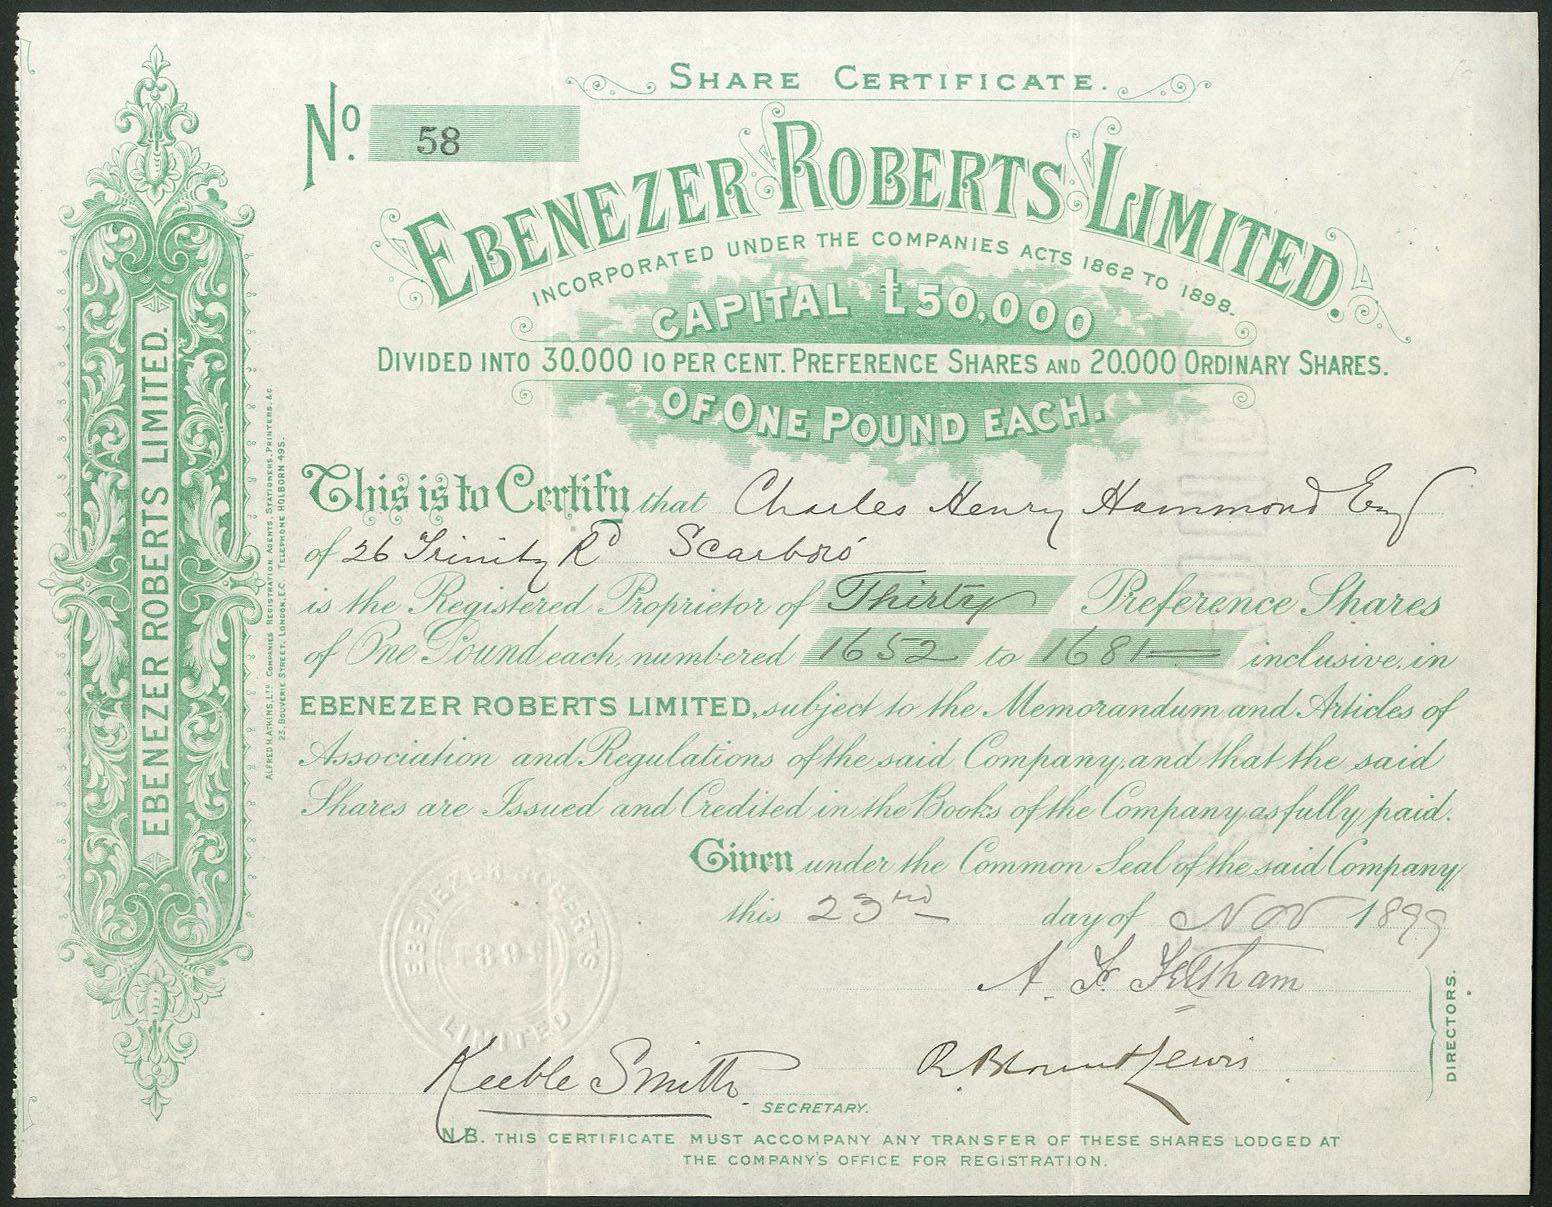 SHARE CERTIFICATE.
No. 58
EBENEZER ROBERTS LIMITED.
INCORPORATED UNDER THE COMPANIES ACTS 1862 TO 1898.
CAPITAL £50,000
DIVIDED INTO 30.000 10 PER CENT. PREFERENCE SHARES AND 20.000 ORDINARY SHARES.
OF ONE POUND EACH.
This is to Certify that Charles Henry Hammond Esq
of 26 Trinity Rd Scarboro'
is the Registered Proprietor of Thirty Preference Shares
of One Pound each, numbered 1652 to 1681 inclusive, in
EBENEZER ROBERTS LIMITED, subject to the Memorandum and Articles of
Association and Regulations of the said Company, and that the said
Shares are Issued and Credited in the Books of the Company as fully paid.
Given under the Common Seal of the said Company
this 23rd day of Nov 1899
A. F. Feltham
R. Blount Lewis
DIRECTORS.
Keeble Smith.
SECRETARY.
N.B. THIS CERTIFICATE MUST ACCOMPANY ANY TRANSFER OF THESE SHARES LODGED AT
THE COMPANY'S OFFICE FOR REGISTRATION.
EBENEZER ROBERTS LIMITED.
ALFRED H. ATKINS, LTD COMPANIES REGISTRATION AGENTS, STATIONERS, PRINTERS, &c
23, BOUVERIE STREET, LONDON, E.C. TELEPHONE HOLBORN 495.
EBENEZER ROBERTS
LIMITED